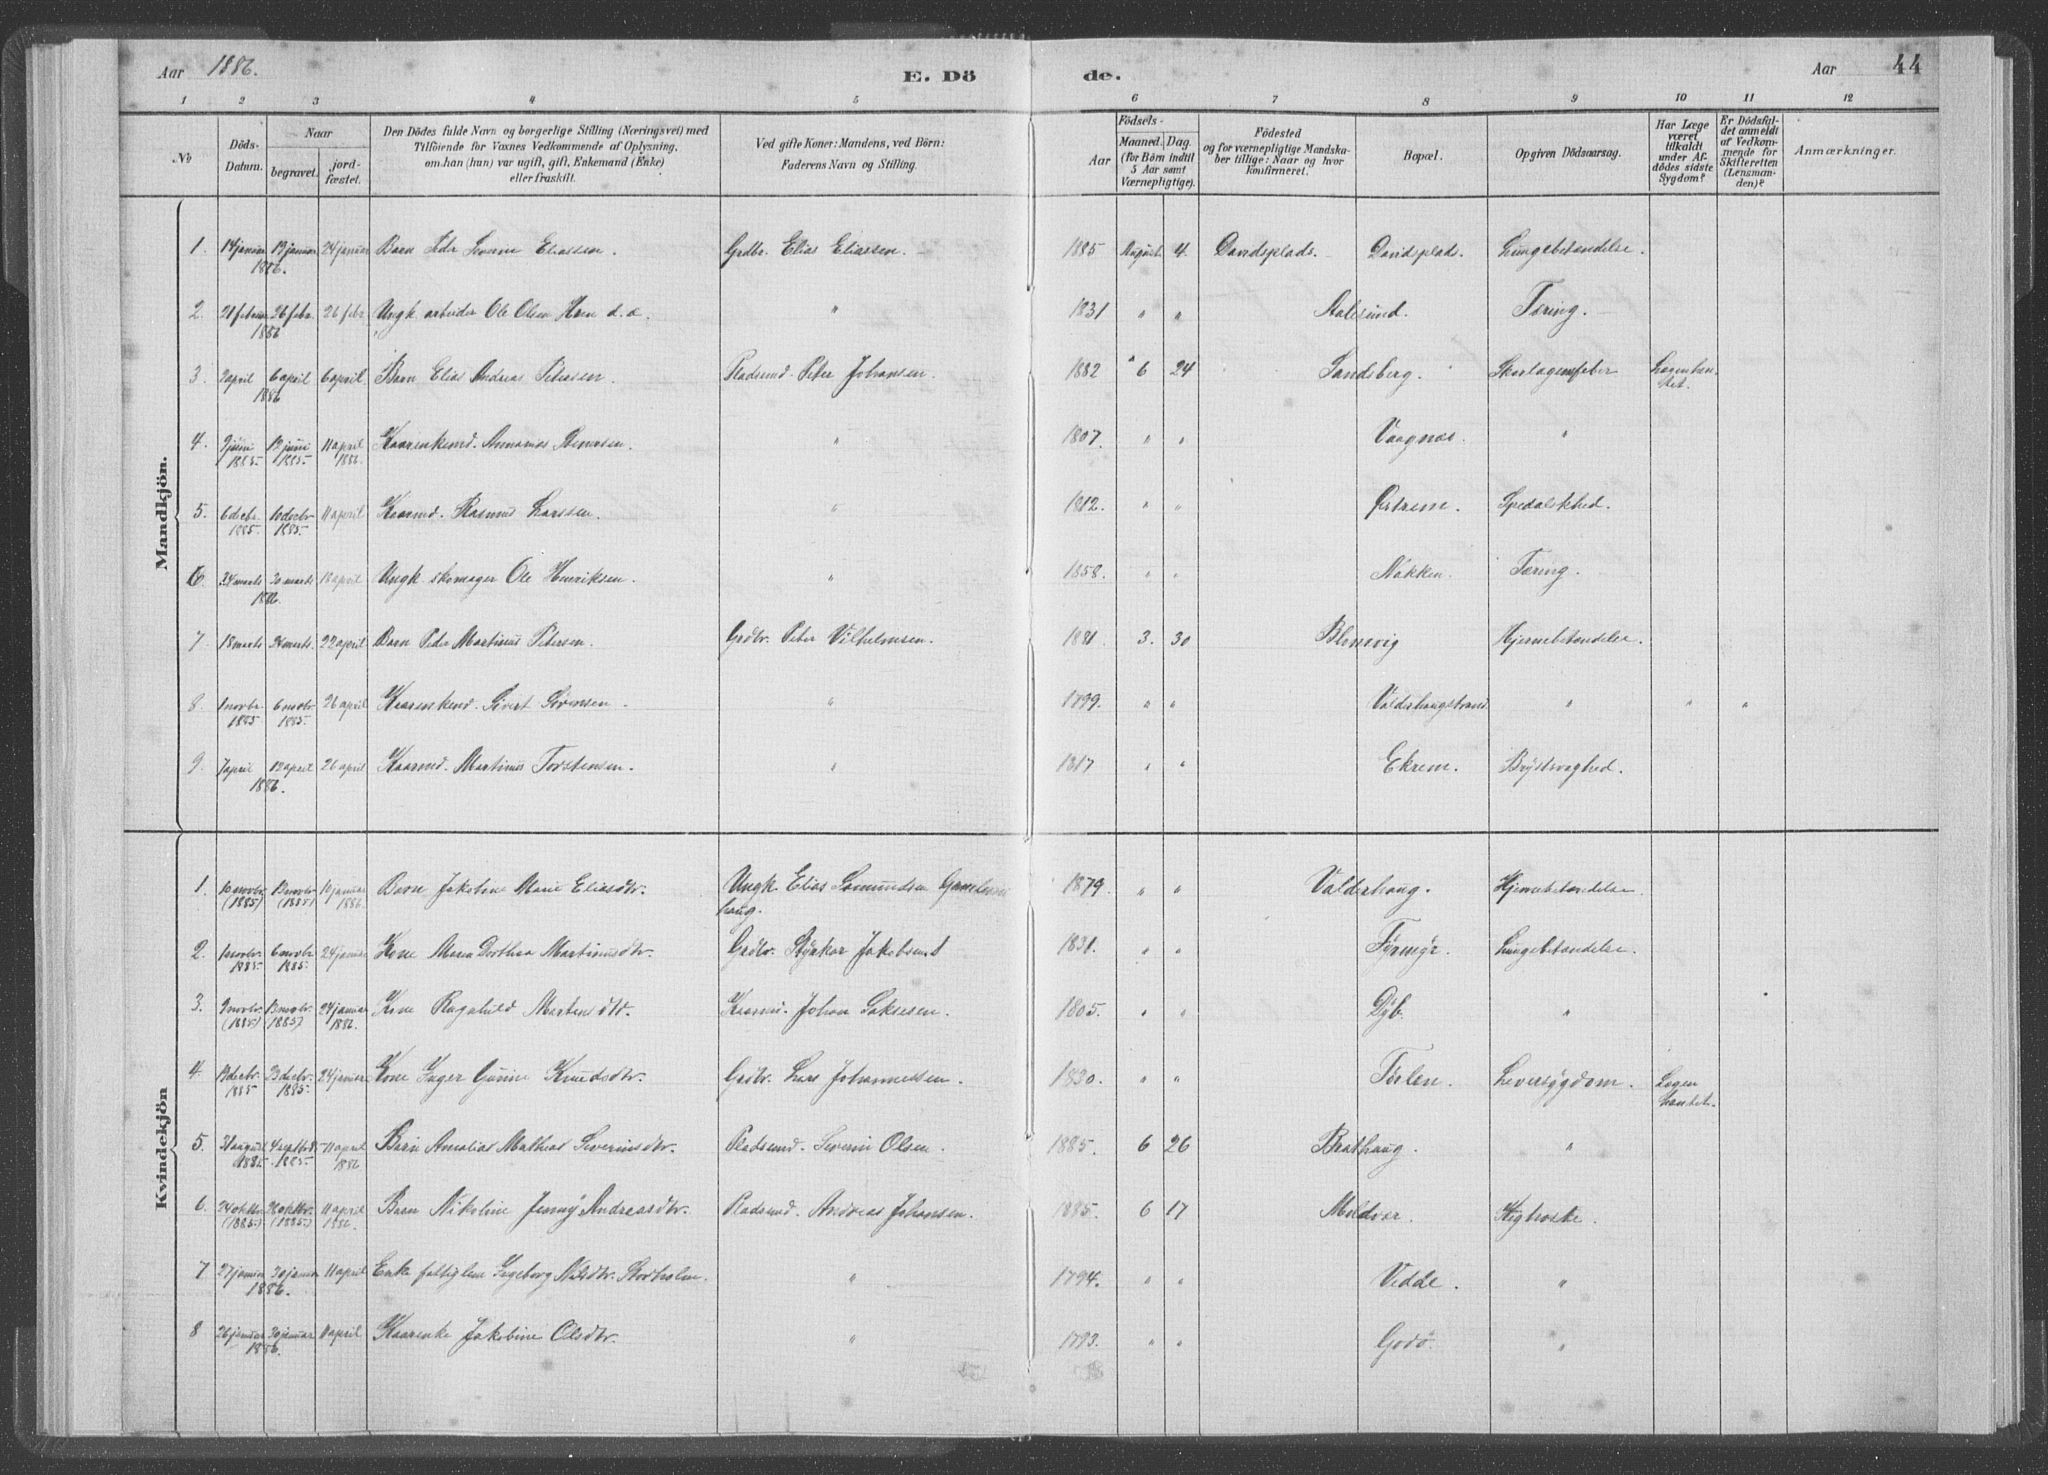 Aar 1886. E. Dö de. Aar 44
1 2 3 4 5 6 7 8 9 10 11 12
No
Döds-Datum.
Naar
begravet.
jord-fæstet.
Den Dödes fulde Navn og borgerlige Stilling (Næringsvei) med
Tilföiende for Voxnes Vedkommende af Oplysning,
om han (hun) var ugift, gift, Enkemand (Enke)
eller fraskilt.
Ved gifte Koner: Mandens, ved Börn:
Faderens Navn og Stilling.
Födsels-
Aar
Maaned. Dag.
(for Börn indtil
5 Aar samt
Værnepligtige).
Födested
og for værnepligtige Mandska-
ber tillige: Naar og hvor
konfirmeret.
Bopæl.
Opgiven Dödsaarsag.
Har Læge
været
tilkaldt
under Af-
dödes sidste
Sygdom?
Er Dödsfal-
det anmeldt
af Vedkom-
mende for
Skifteretten
(Lensman-
den)?
Anmærkninger.
Mandkjön.
1. 14 januar 1886. 19 januar 24 januar Barn Eliassen. Grdbr. Elias Eliassen. 1885 August 4. Davidsplads. Davidsplads. Lungebetændelse.
2. 21 februar 1886 26 febr. 26 febr. Ungk. arbeider Ole Olsen d. æ. " 1831 " " Aalesund. Tæring.
3. 2 april 1886 6 april 6 april Barn Elias Andreas Petersen. Pladsmd. Peter Johansen. 1882 " 6 24 Sandsberg. Skarlagensfeber
4. 9 juni 1885. 13 juni 1885. 11 april 1886. Kaarenkemd. Ananias " 1807. " " Vaagnæs. "
5. 6 decbr. 1885 10 decbr. 1885. 11 april Kaarmd. Rasmus Larssen. " 1812. " " Østrem. Spedalskhed.
6. 24 marts 1886. 30 marts 18 april Ungk. skomager Ole Henriksen. " 1858. " " Nøkken. Tæring.
7. 18 marts 24 marts. 22 april Barn Peder Martinus Petersen. Grdbr. Peter Vilhelmsen. 1881. 3. 30 Blimsvig Hjernebetændelse.
8. 1 novbr. 1885 6 novbr. 1885. 26 april Kaarenkemd. Sivert Sivertsen. " 1799. " " Valderhaugstrand " " "
9. 7 april 1886. 13 april 26 april Kaarmd. Martinus Torstensen. " 1817 " " Ekrem. Brystsvaghed.
Kvindekjön
1. 10 novbr. (1885) 13 novbr. (1885) 10 januar 1886. Barn Jakobine Marie Eliasdtr. Ungk. Elias Samundsen
haug. 1879. " " Valderhaug. Hjernebetændelse.
2. 1 novbr. 1885 6 novbr. 1885. 24 januar Kone Maren Dorthea Martinusdtr. Grdbr. Styrkor Jakobsen 1831. " " Lungebetændelse.
3. 9 novbr. (1885) 13 novbr. (1885) 24 januar 1886. Kone Ragnhild Martensdtr. Kaarmd. Johan Saksesen. 1805. " " Dyb. "
4. 13 decbr. 1885 23 decbr. 1885. 24 januar Kone Inger Gurine Knudsdtr. Grdbr. Lars Johannessen. 1830. " " Leversygdom.
5. 31 august 1885. 4 septbr. 1885. 11 april 1886 Barn Amalias Mathea Severinsdtr. Pladsmd. Severin Olsen. 1885. 6 26 Brathaug. "
6. 24 oktbr. (1885) 28 oktbr. (1885) 11 april 1886. Barn Nikoline Jenny Andreasdtr. Pladsmd. Andreas Johansen. 1885. 6 17 Moldvær. Kighoste.
7 27 januar 1886. 30 januar 11 april Enke fattiglem Ingeborg Nilsdtr. Storholm. " 1794. " " Vedde. "
8 26 januar 1886 30 januar 11 april Kaarenke Jakobine Olsdtr. " 1793. " " Godø. "